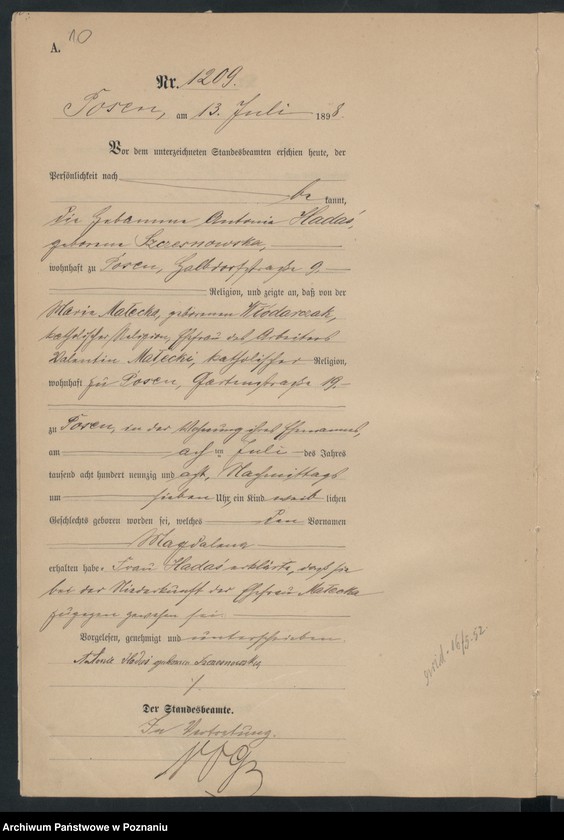 A. 10
Nr. 1209.
Posen, am 13. Juli 1898.
Vor dem unterzeichneten Standesbeamten erschien heute, der
Persönlichkeit nach
be kannt,
die Hebamme Antonie Hadaś,
geborene Szczesnowska,
wohnhaft zu Posen, Halbdorfstraße 9.
Religion, und zeigte an, daß von der
Marie Małecka, geborenen Włodarczak,
katholischer Religion, Ehefrau des Arbeiters
Valentin Małecki, katholischer Religion,
wohnhaft zu Posen, Gartenstraße 19.
zu Posen, in der Wohnung ihres Ehemannes,
am acht ten Juli des Jahres
tausend acht hundert neunzig und acht, Nachmittags
um sieben Uhr, ein Kind weib lichen
Geschlechts geboren worden sei, welches den Vornamen
Magdalena
erhalten habe. Frau Hadaś erklärte, daß sie
bei der Niederkunft der Ehefrau Małecka
zugegen gewesen sei.
Vorgelesen, genehmigt und unterschrieben.
Antonie Hadaś geborene Szczesnowska
Der Standesbeamte.
In Vertretung.
16/5.52.
Archiwum Państwowe w Poznaniu